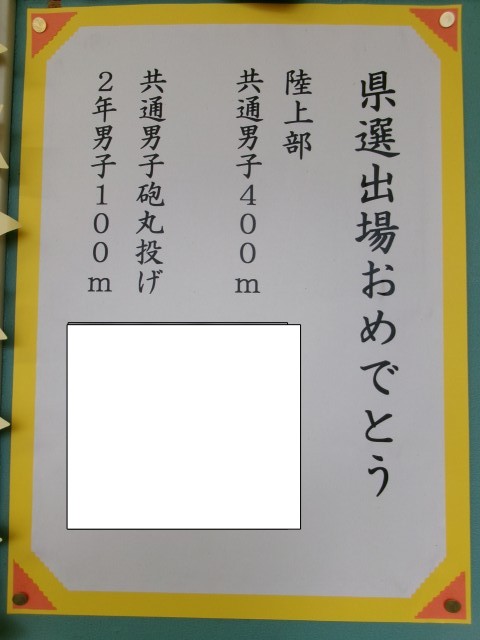 県選出場おめでとう
陸上部
共通男子４００ｍ
共通男子砲丸投げ
２年男子１００ｍ